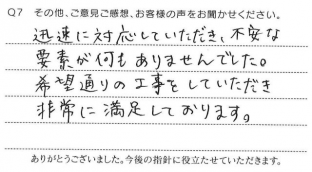 Q7 その他、ご意見ご感想、お客様の声をお聞かせください。
迅速に対応していただき、不安な
要素が何もありませんでした。
希望通りの工事をしていただき
非常に満足しております。
ありがとうございました。今後の指針に役立たせていただきます。